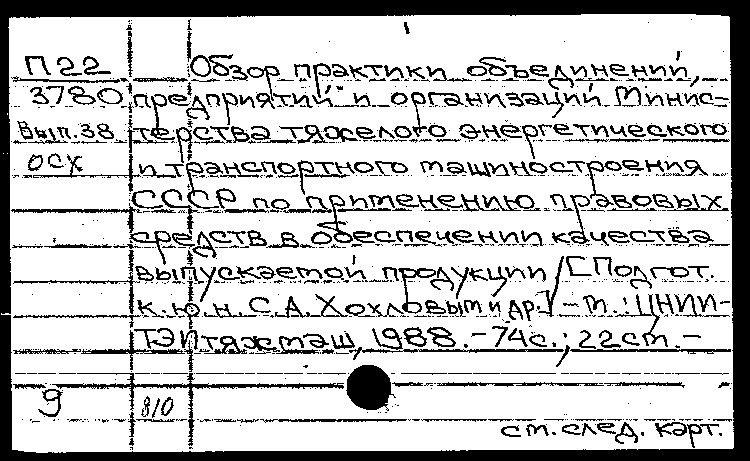 П22 Обзор практики объединений,
3780 предприятий и организаций Минис-
Вып.38 терства тяжелого энергетического
осх и транспортного машиностроения
СССР по применению правовых
средств в обеспечении качества
выпускаемой продукции / [Подгот.
к.ю.н. С.А. Хохловым и др.] – м.: ЦНИИ-
ТЭИтяжмаш, 1988. – 74с.; 22см. –
9 810
см. след. карт.